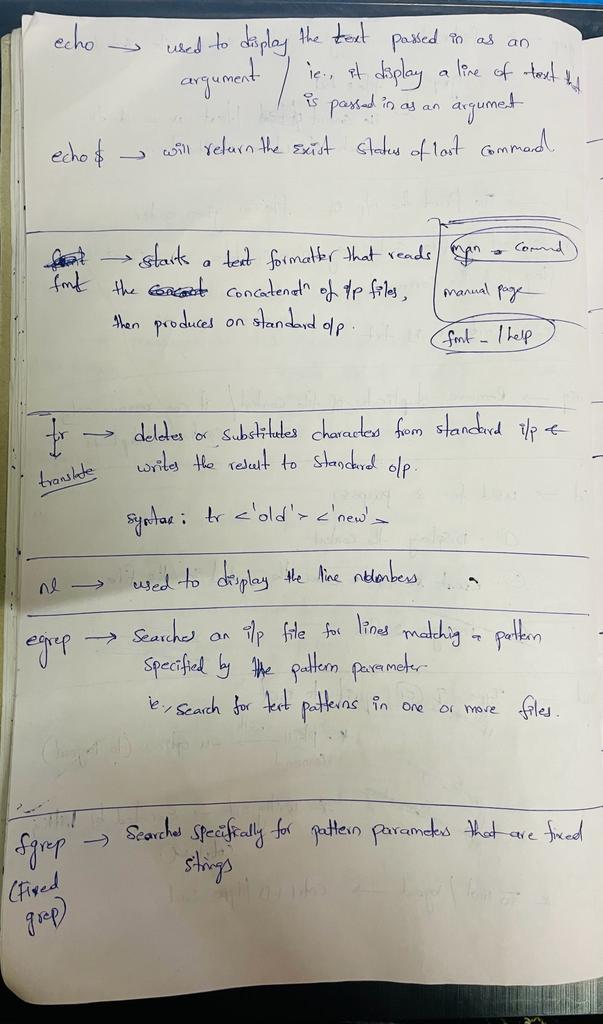 echo → used to display the text passed in as an
argument / ie., it display a line of text that
is passed in as an argument
echo $ → will return the Exist status of last command.
fmt → starts a text formatter that reads
the concatenatn of i/p files,
then produces on standard o/p.
man - commd
manual page
fmt - /help
tr → deletes or substitutes characters from standard i/p &
translate writes the result to standard o/p.
syntax: tr <'old'> <'new'>
nl → used to display the line numbers.
egrep → Searches an i/p file for lines matching a pattern
specified by the pattern parameter
ie., search for text patterns in one or more files.
fgrep → Searches specifically for pattern parameters that are fixed
strings
(Fixed
grep)